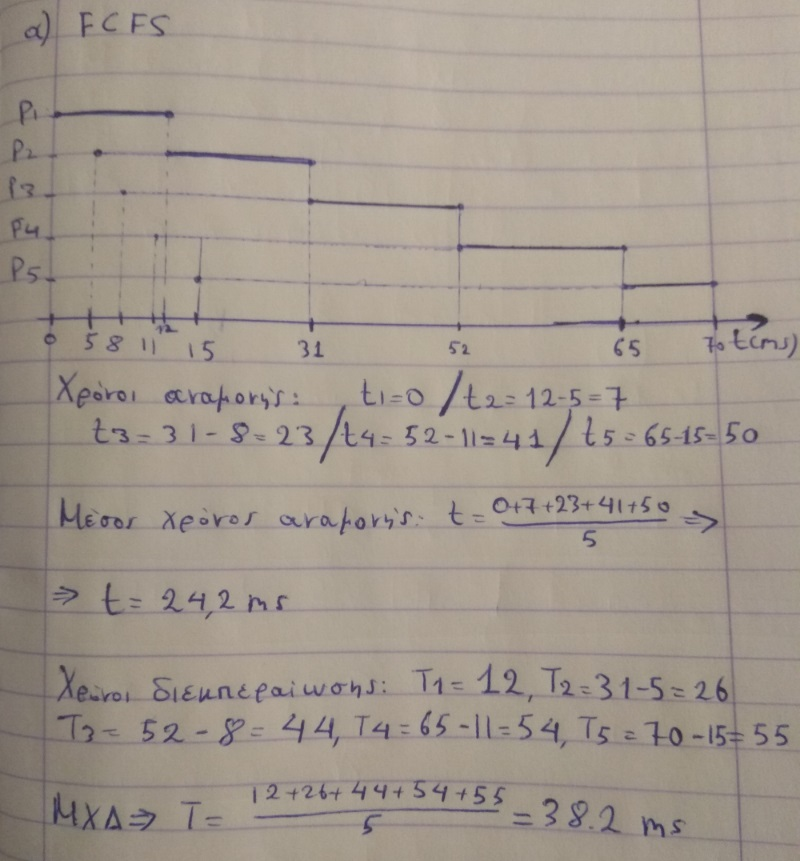 α) FCFS
P1
P2
P3
P4
P5
0 5 8 11 12 15 31 52 65 70 t(ms)
Χρόνοι αναμονής: t1=0 / t2=12-5=7
t3=31-8=23 / t4=52-11=41 / t5=65-15=50
Μέσος χρόνος αναμονής: t=0+7+23+41+50/5 ⇒
⇒ t=24,2 ms
Χρόνοι διεκπεραίωσης: T1=12, T2=31-5=26
T3=52-8=44, T4=65-11=54, T5=70-15=55
ΜΧΔ⇒ T=12+26+44+54+55/5=38.2 ms